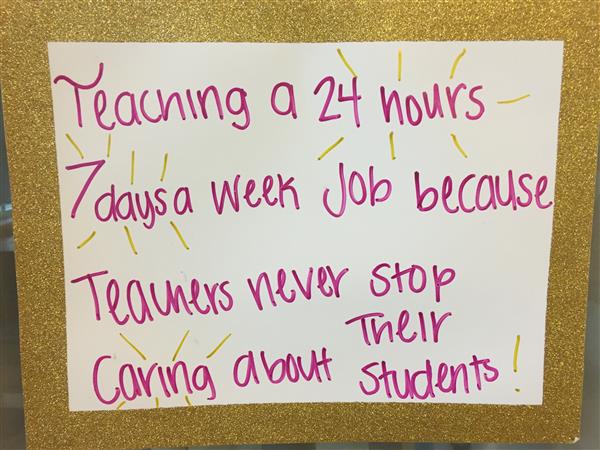 Teaching a 24 hours
7 days a week Job because
Teachers never stop
Caring about Their
students!